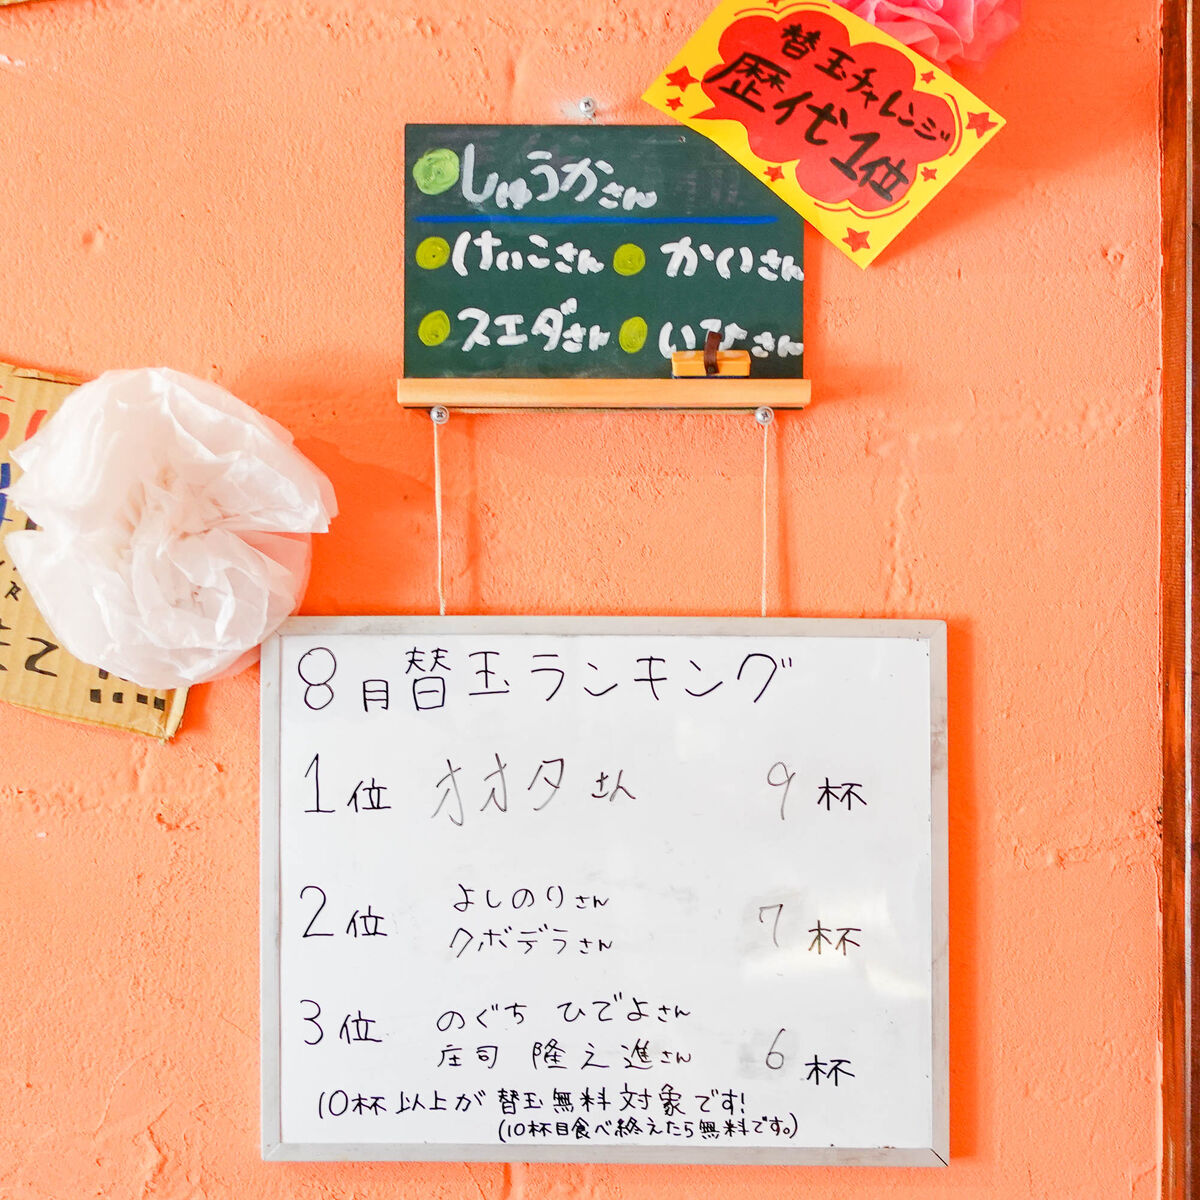 替玉チャレンジ
歴代1位
しゅうかさん
けいこさん かいさん
スエダさん さん
8月替玉ランキング
1位 オオタさん 9杯
2位 よしのりさん
クボデラさん 7杯
3位 のぐち ひでよさん
庄司 隆之進さん 6杯
10杯以上が替玉無料対象です!
(10杯目食べ終えたら無料です。)